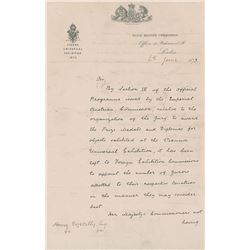 VIENNA
UNIVERSAL
EXHIBITION
1873
6th June 1873
Sir,
By Section IV of the Official
Programme issued by the Imperial
Austrian Commission relative to the
organization of the Jury to award
the Prize Medals and Diplomas for
objects exhibited at the Vienna
Universal Exhibition, it has been
left to Foreign Exhibition Commissions
to appoint the number of Jurors
allotted to their respective countries
in the manner they may consider
best
Her Majesty's Commissioners not
having
Henry Vizetelly Esq